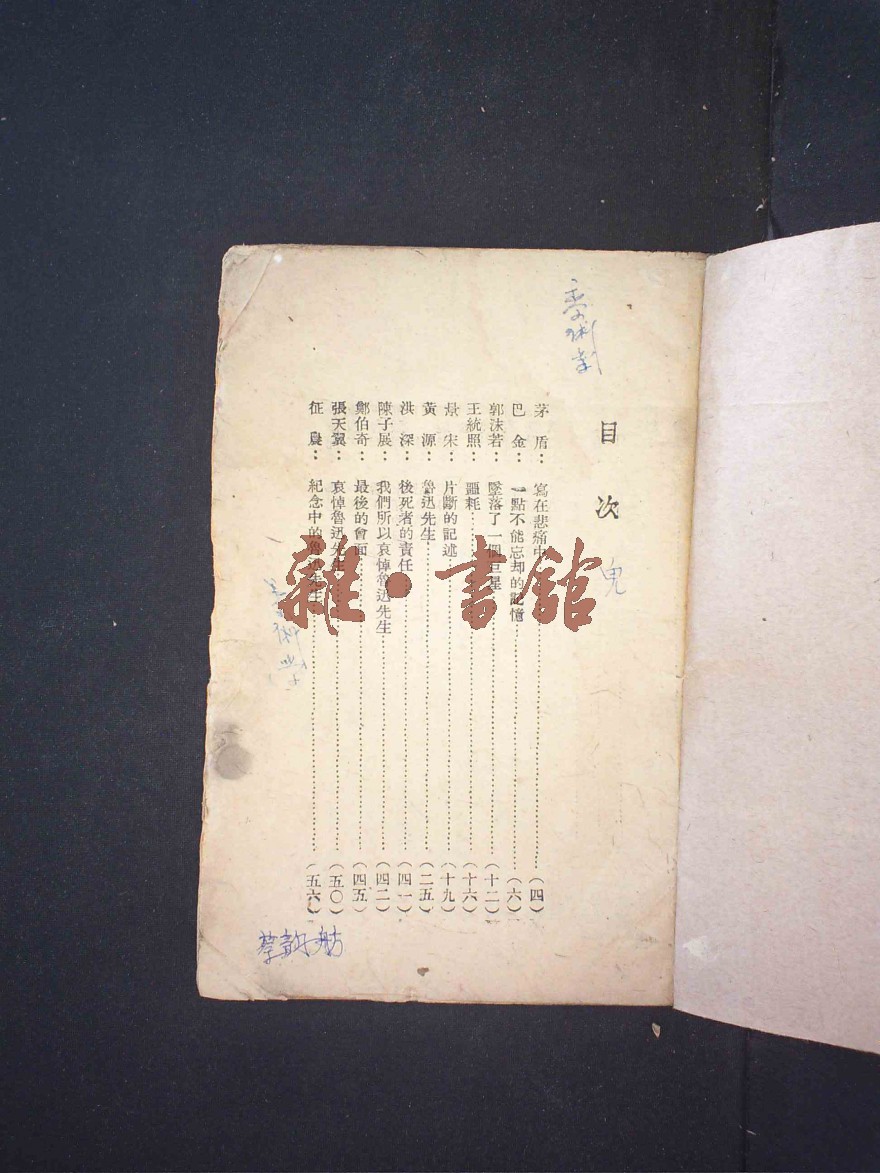 目次
茅盾：寫在悲痛中……（四）
巴金：一點不能忘却的記憶……（六）
郭沫若：墜落了一個巨星……（十二）
王統照：噩耗……（十六）
景宋：片斷的記述……（十九）
黃源：魯迅先生……（二五）
洪深：後死者的責任……（四一）
陳子展：我們所以哀悼魯迅先生……（四二）
鄭伯奇：最後的會面……（四五）
張天翼：哀悼魯迅先生……（五〇）
征農：紀念中的魯迅先生……（五六）
雜·書館